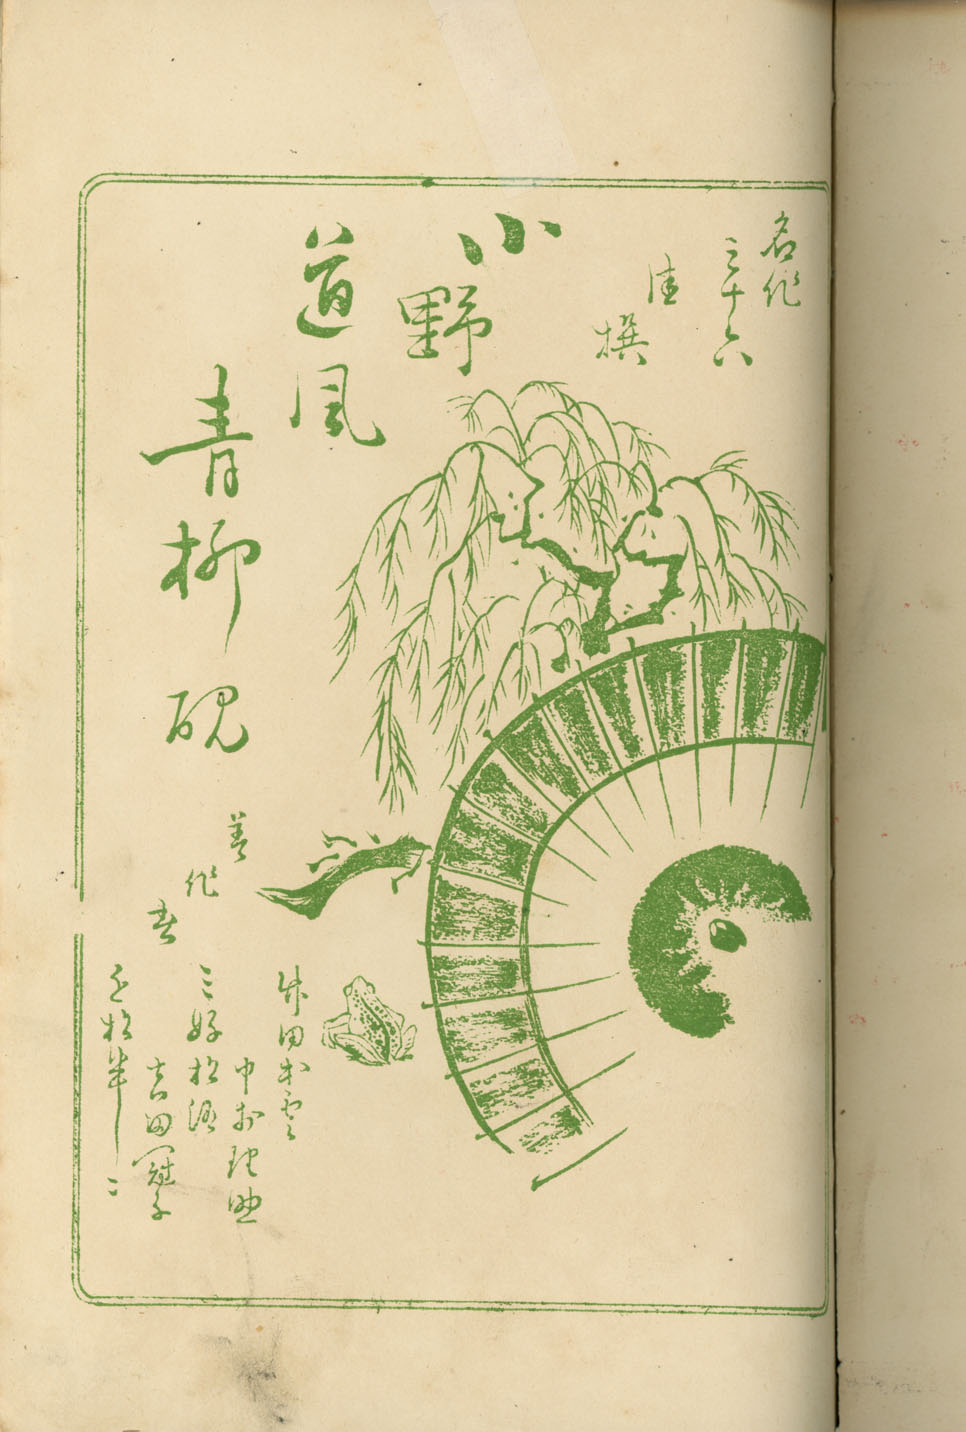 名作
三十六
佳
撰
小野
道風
青柳硯
著
作
者
竹田出雲
中村助
三好松洛
吉田冠子
近松半二